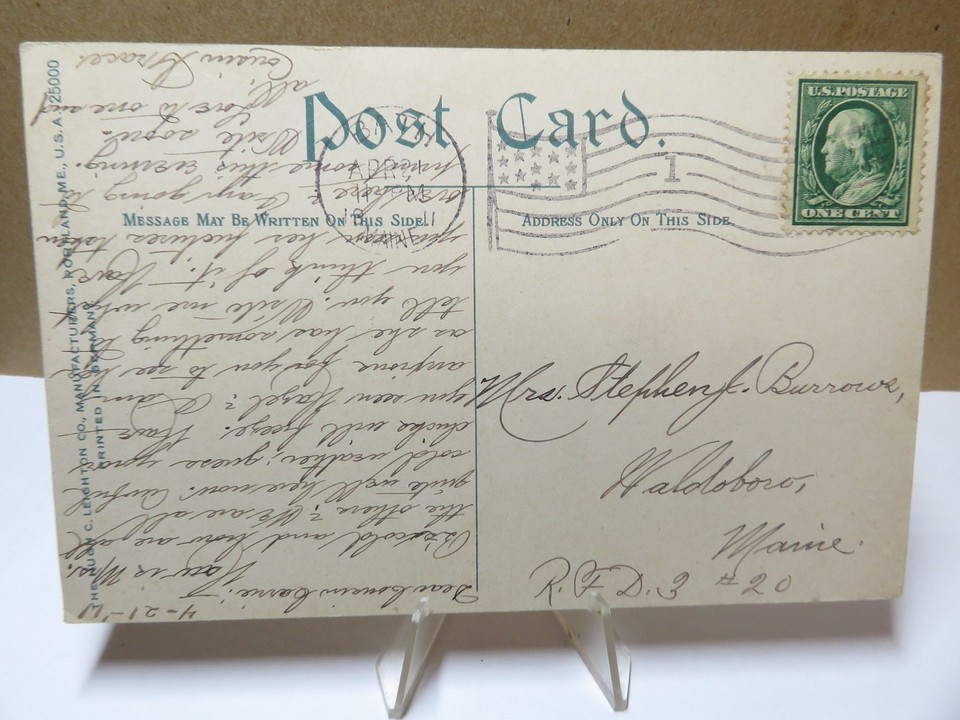 Post Card.
U.S. POSTAGE
ONE CENT
1
MESSAGE MAY BE WRITTEN ON THIS SIDE.
ADDRESS ONLY ON THIS SIDE.
THE HUGH C. LEIGHTON CO., MANUFACTURERS, PORTLAND, ME., U.S.A.
25000
PRINTED IN GERMANY
Mrs. Stephen J. Burrows,
Waldoboro,
Maine.
R.F.D. 3 #20
4-21-'11
Dear Cousin Carrie:
How is Mrs.
and how are all
the others? We are all
quite well here now. Awful
cold weather; guess your
chicks will freeze. Have
you seen Hazel? I am
anxious for you to see her
as she has something to
tell you. Write me what
you think of it. Have
you her pictures taken
? Am going to
home this evening.
Write soon.
Love to one and
all,
Cousin Grace.